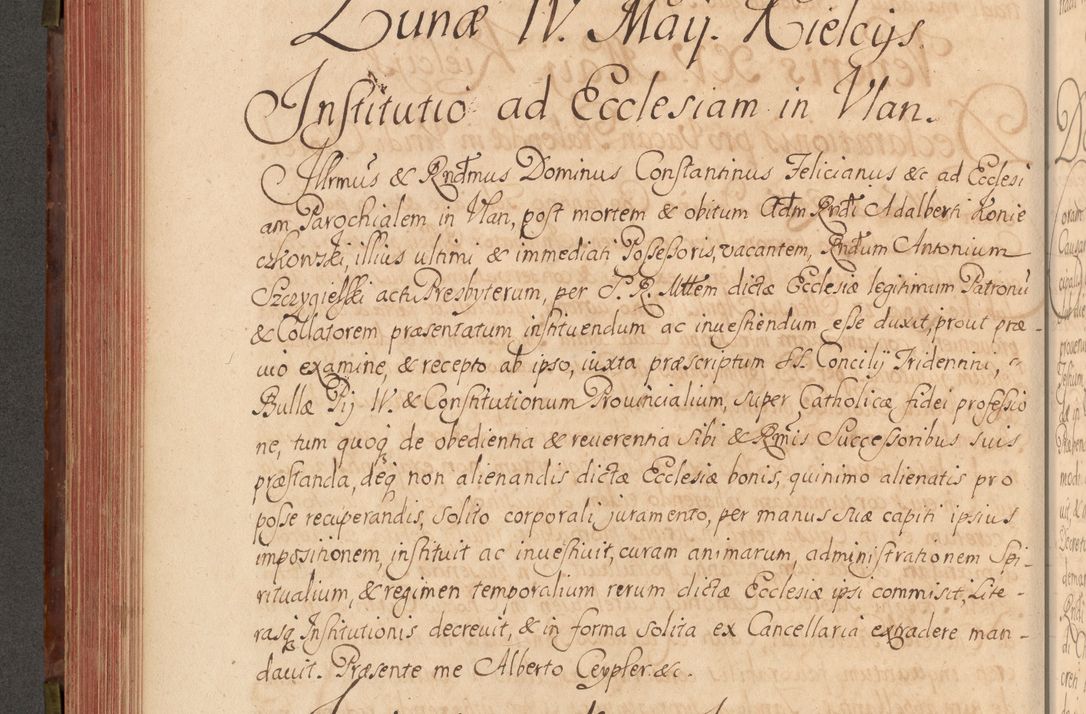 Lunæ IV. Maij. Kielcijs.
Institutio ad Ecclesiam in Vlan.
Illrmus & Rndmus Dominus Constantinus Felicianus &c ad Ecclesi
am Parochialem in Vlan, post mortem & obitum Adm Rndi Adalberti Konie
czkonski, illius ultimi & immediati Possessoris, vacantem, Rndum Antonium
Szczygielski acti Presbyterum, per S. R. Mttem dictæ Ecclesiæ legitimum Patronū
& Collatorem præsentatum instituendum ac inuestiendum esse duxit, prout præ-
uio examine, & recepto ab ipso, iuxta præscriptum SS. Concilij Tridentini, &
Bullæ Pij IV. & Constitutionum Prouincialium, super Catholicæ fidei professio
ne, tum quoq de obedientia & reuerentia sibi & Rmis Successoribus suis
præstanda, deq non alienandis dictæ Ecclesiæ bonis, quinimo alienatis pro
posse recuperandis, solito corporali juramento, per manus suæ capiti ipsius
impositionem, instituit ac inuestiuit, curam animarum, administrationem Spi-
ritualium, & regimen temporalium rerum dictæ Ecclesiæ ipsi commisit, Lite-
rasq Institutionis decreuit, & in forma solita ex Cancellaria extradere man-
dauit. Præsente me Alberto Ceypler &c.